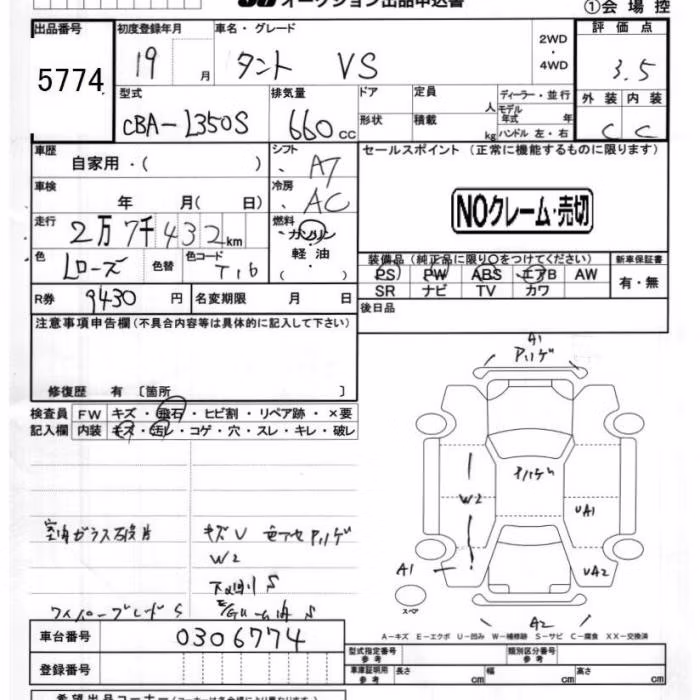 オークション出品申込書
①会場控
出品番号
5774
初度登録年月
19 月
車名・グレード
タント VS
2WD
・
4WD
評価点
3.5
外装 内装
C C
型式
CBA-L350S
排気量
660 cc
ドア
形状
定員 人
積載 kg
ディーラー・並行
モデル
年式 年
ハンドル 左・右
車歴
自家用・( )
シフト
・ A7
車検
年 月( 日)
冷房
・ AC
走行
2万7千432km
燃料
・ガソリン
軽油
・( )
色
Lローズ
色替
色コード
T16
R券
9430 円
名変期限 月 日
セールスポイント (正常に機能するものに限ります)
NOクレーム・売切
装備品(純正品に限り○をつけてください)
PS PW ABS エアB AW
SR ナビ TV カワ
新車保証書
有・無
後日品
注意事項申告欄(不具合内容等は具体的に記入して下さい)
修復歴 有 〔箇所 〕
検査員
記入欄
FW キズ・飛石・ヒビ割・リペア跡・×要
内装 キズ・汚レ・コゲ・穴・スレ・キレ・破レ
室内ガラス破片
キズU
W2
下廻り S
E/Gルーム内 S
ワイパーブレード S
A1
アリゲ
アリゲ
W2
UA1
A1
UA2
スペア
A2
A-キズ E-エクボ U-凹み W-補修跡 S-サビ C-腐食 XX-交換済
車台番号
0306774
登録番号
型式指定番号
参考
類別区分番号
参考
車庫証明用
参考
長さ cm
幅 cm
高さ cm
希望出品コーナー